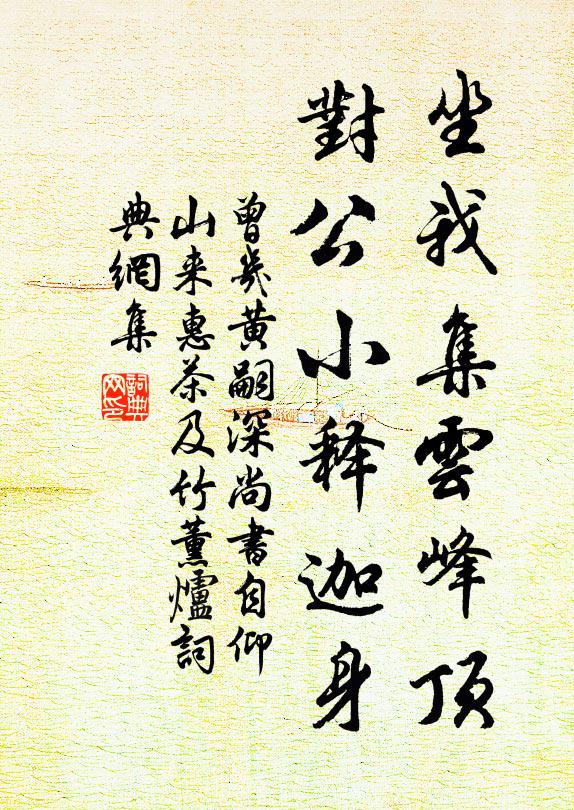 坐我集雲峰頂
對公小释迦身
曾幾黄嗣深尚書自仰
山来惠茶及竹薰爐詞
典網集
詞典
网印